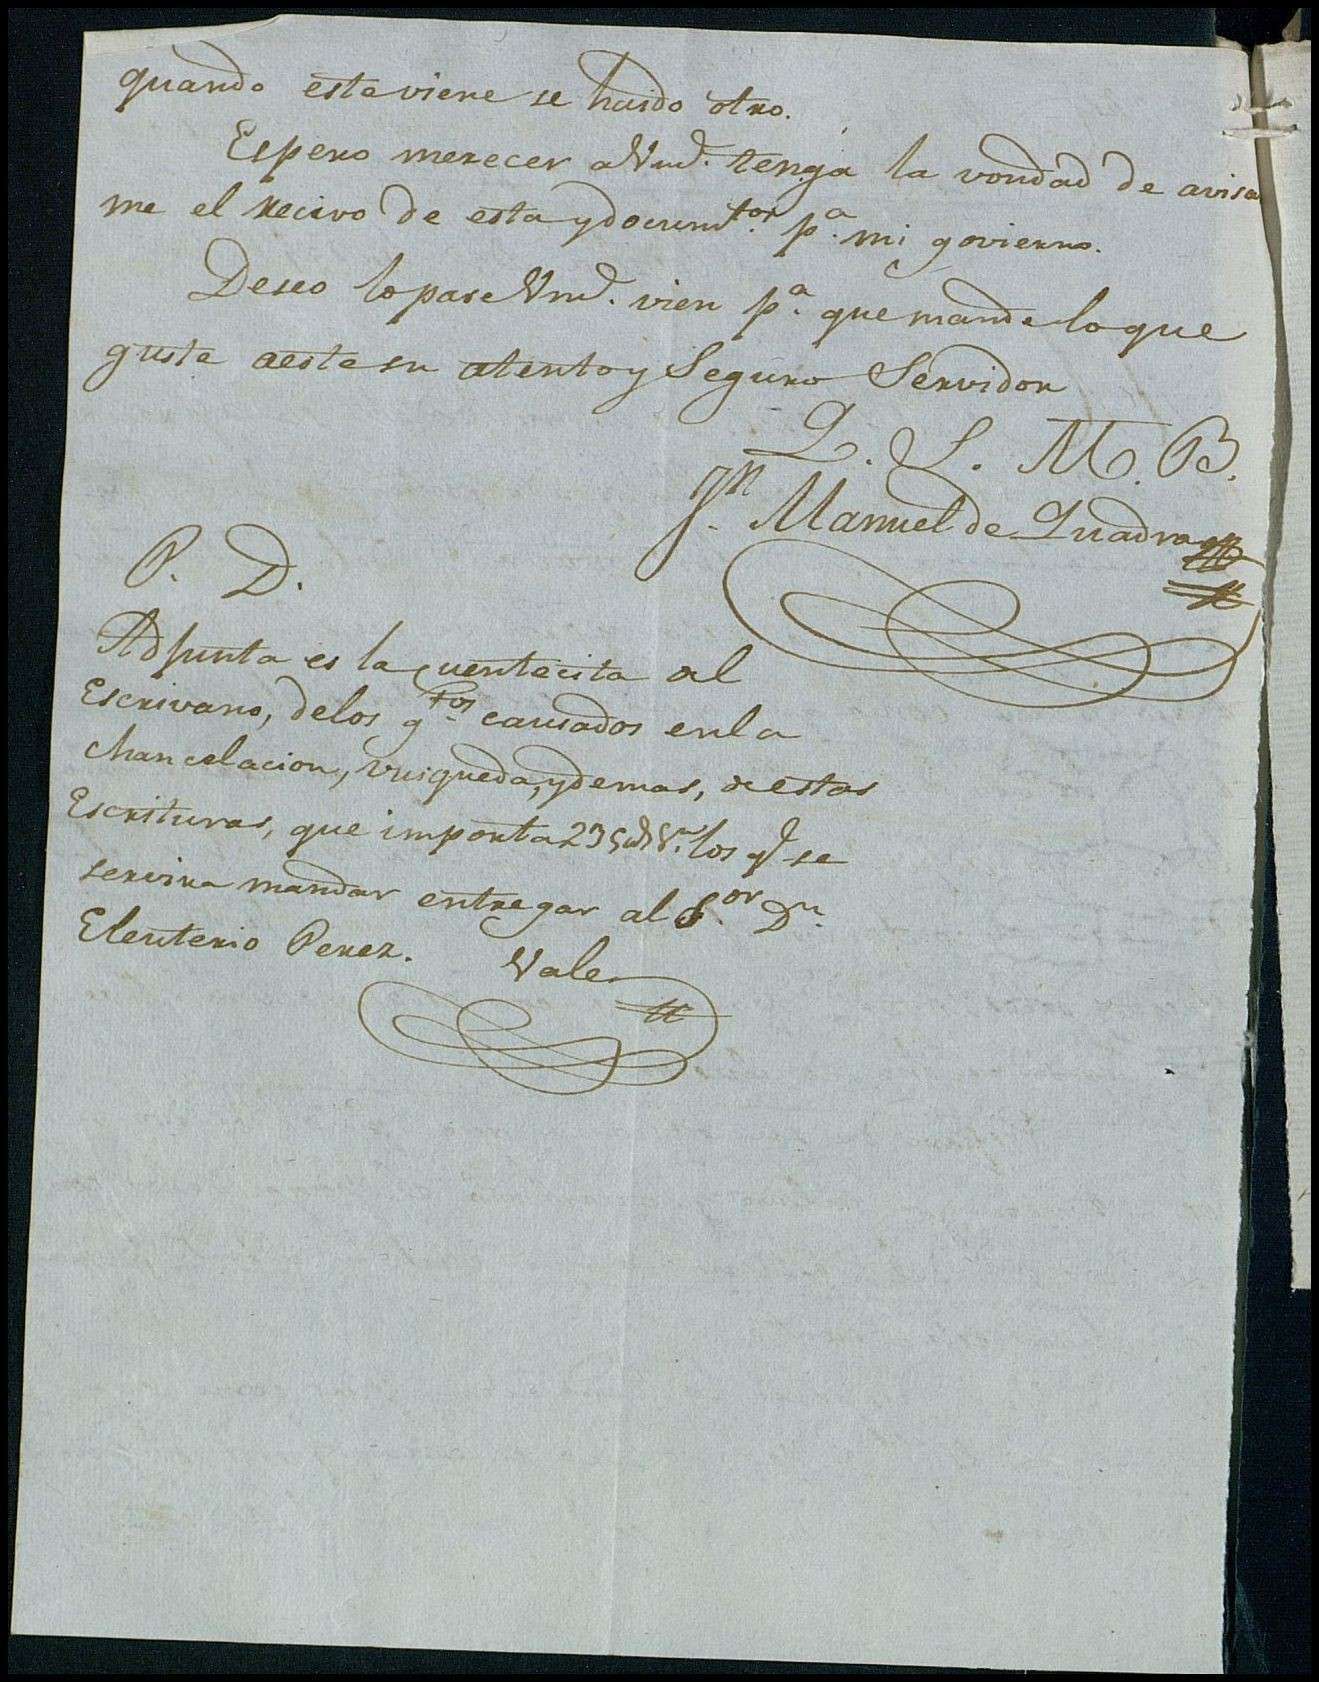 quando este viene se ha ido otro.
Espero merecer a Vmd. tenga la vondad de avisar
me el recivo de esta y docum.tos p.a mi govierno.
Deseo lo pase Vmd. vien p.a que mande lo que
guste a este su atento y Seguro Servidor
Q. S. M. B.
Manuel de Quadra
P. D.
Adjunta es la cuentecita del
Escrivano, de los g.tos causados en la
chancelacion, vusqueda, y demas, de estas
Escrituras, que importa 235 los q.e se
servira mandar entregar al S.or D.n
Eleuterio Perez. Vale